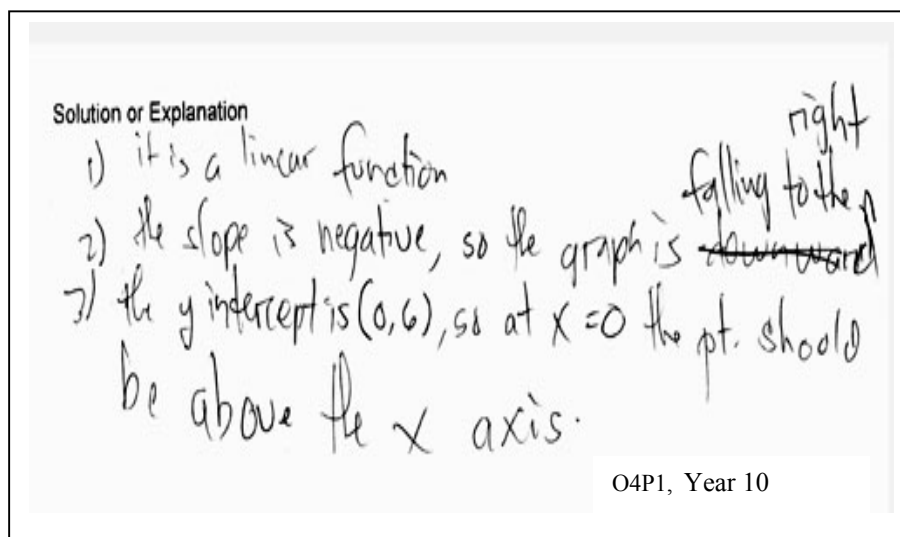 Solution or Explanation
1) it is a linear function
2) the slope is negative, so the graph is falling to the right downward
3) the y intercept is (0,6), so at x=0 the pt. should
be above the x axis.
O4P1, Year 10